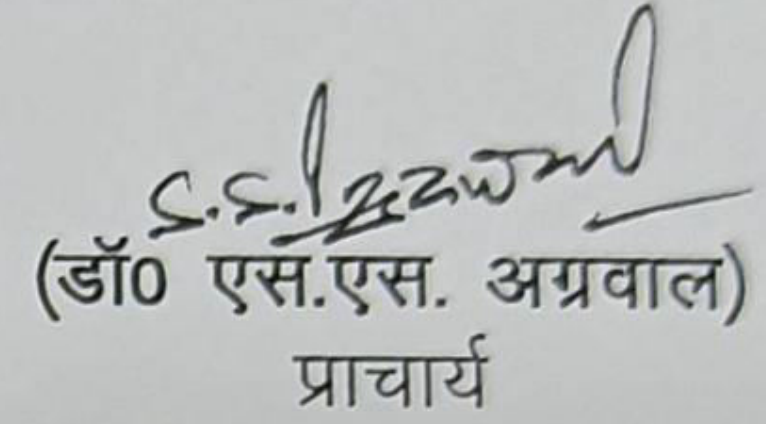 S.S. Agrawal
(डॉ0 एस.एस. अग्रवाल)
प्राचार्य